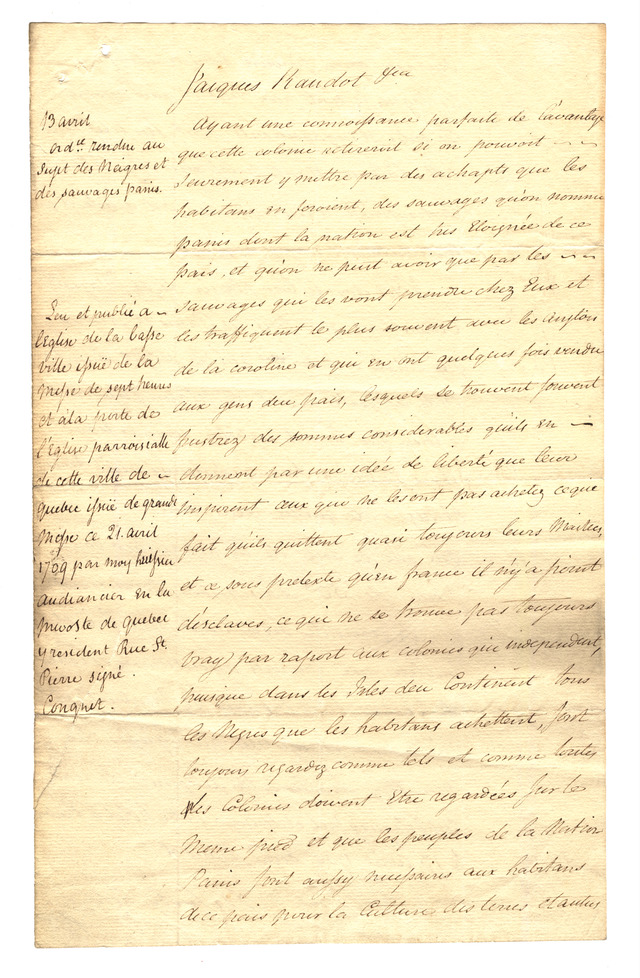 Jacques Raudot &ca
13 avril
ord.ce rendue au
Sujet des Neigres et
des sauvages panis.
Leu et publié a
l'Eglise de la basse
ville issüe de la
Messe de sept heures
et a la porte de
l'Eglise parroissialle
de cette ville de
quebec issüe de grande
Messe ce 21. avril
1709 par moy huissier
audiancier En la
prevoste de quebec
y resident Rue St.
Pierre signé.
Conguet.
Ayant une connoissance parfaite de l'avantage
que cette colonie retireroit si on pouvoit
seurement y mettre par des achapts que les
habitans En feroient, des sauvages qu'on nomme
panis dont la nation est tres Eloignée de ce
païs, et qu'on ne peut avoir que par les
sauvages qui les vont prendre chez Eux et
les traffiquent le plus souvent avec les anglois
de la caroline et qui en ont quelques fois vendu
aux gens deu païs, lesquels se trouvent souvent
frustrez des sommes considerables qu'ils en
donnent par une idée de liberté que leur
inspirent aux que ne les ont pas achetez ce qui
fait qu'ils quittent quasi toujours leurs Maitres,
et ce sous pretexte qu'en france il n'y a point
d'esclaves, ce qui ne se trouve pas toujours
vray par raport aux colonies qui independent,
puisque dans les Isles deu Continent tous
les Negres que les habitans achettent, sont
toujours regardez comme tels et comme toutes
les Colonies doivent Etre regardées sur le
Meme pied et que les peuples de la Nation
Panis sont aussy necessaires aux habitans
de ce païs pour la Culture des terres et autres